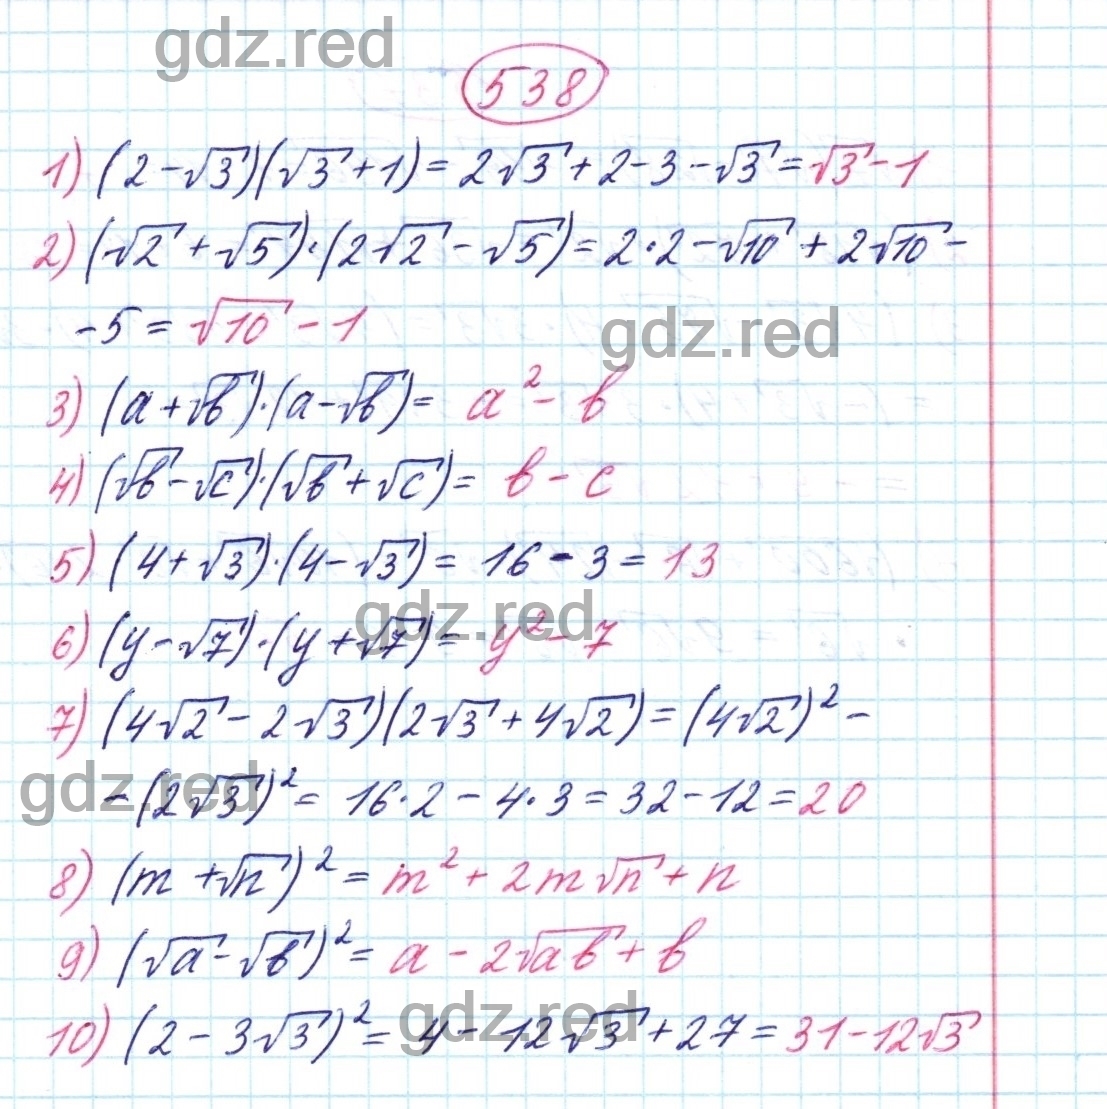 gdz.red
538
1) (2 - √3)(√3 + 1) = 2√3 + 2 - 3 - √3 = √3 - 1
2) (√2 + √5)·(2√2 - √5) = 2·2 - √10 + 2√10 -
- 5 = √10 - 1
gdz.red
3) (a + √b)·(a - √b) = a² - b
4) (√b - √c)·(√b + √c) = b - c
5) (4 + √3)·(4 - √3) = 16 - 3 = 13
gdz.red
6) (y - √7)·(y + √7) = y² - 7
7) (4√2 - 2√3)(2√3 + 4√2) = (4√2)² -
gdz.red
- (2√3)² = 16·2 - 4·3 = 32 - 12 = 20
8) (m + √n)² = m² + 2m√n + n
9) (√a - √b)² = a - 2√ab + b
gdz.red
10) (2 - 3√3)² = 4 - 12√3 + 27 = 31 - 12√3